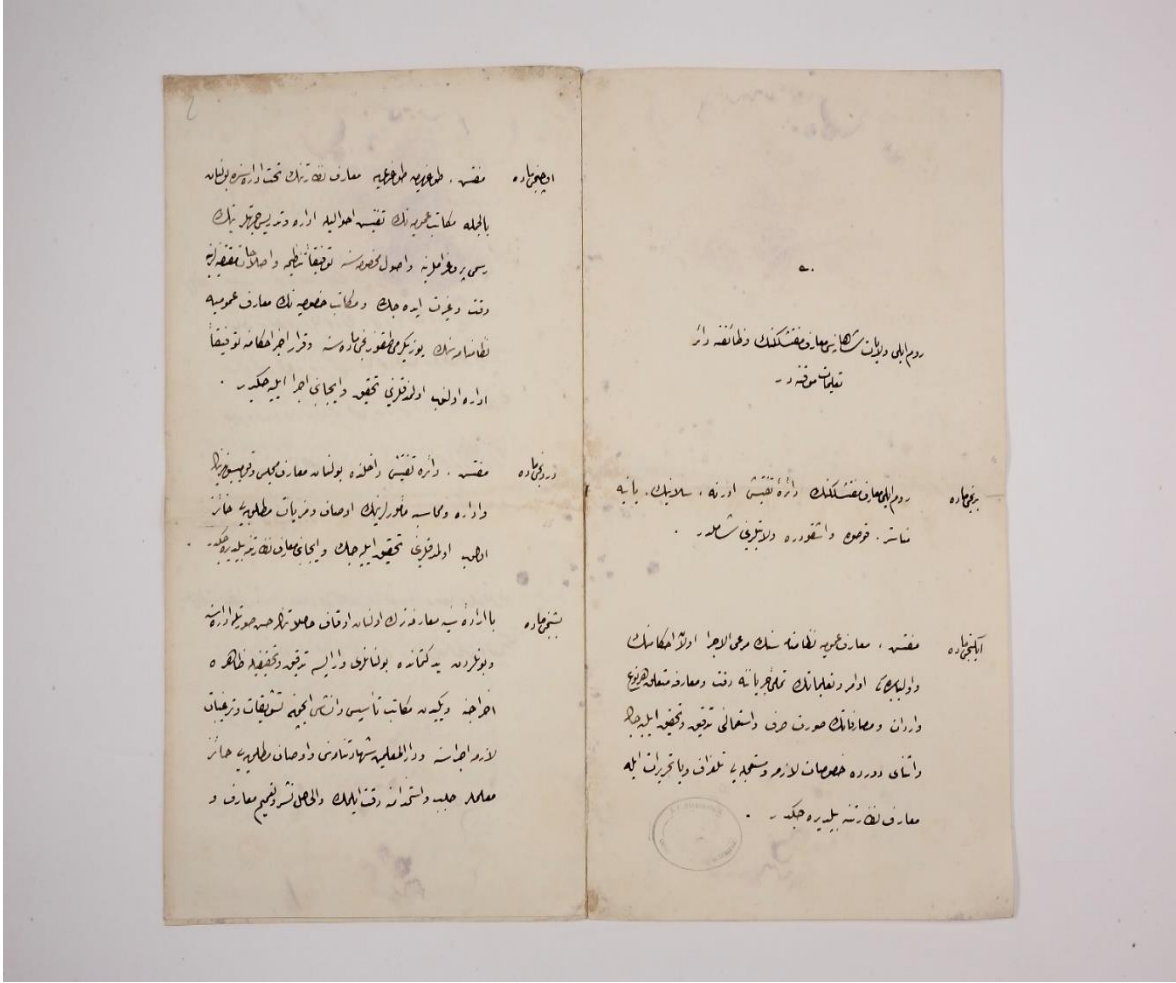 روم ايلى ولايات شاهانه سى معارف مفتشلكنك وظائفنه دائر
تعليمات موقته در
برنجى ماده روم ايلى معارف مفتشلكنك دائرۀ تفتيشى ادرنه ، سلانيك ، يانيه
مناستر ، قوصوه و اشقودره ولايتلرينى شاملدر .
ايكنجى ماده مفتش ، معارف عموميه نظامنامه سنك مرعى الاجرا اولان احكامنك
و اوامر و تعليماتك تمامئ جرياننه دقت و معارفه متعلق هر نوع
واردات و مصارفاتك صورت صرف و استعمالنى تدقيق و تحقيق ايله جك
و اثناى دورده خصوصات لازمه و مستعجله يى تلغراف ويا تحريرات ايله
معارف نظارتنه بيلديره جكدر .
اوچنجى ماده مفتش ، طوغريدن طوغرى يه معارف نظارتنك تحت اداره سنده بولنان
بالجمله مكاتب عموميه نك تفتيش احواليله اداره و تدريس جهتلرينك
رسمى پروغراملرينه و اصول مخصوصه سنه توفيقاً تنظيم و اصلاحات مقتضيه سنه
دقت و غيرت ايده جك و مكاتب خصوصيه نك معارف عموميه
نظامنامه سنك يوز يكرمى طقوزنجى ماده سنه و قرار اجرا احكامنه توفيقاً
اداره اولنوب اولنمدقلرينى تحقيق و ايجابنى اجرا ايله جكدر .
دردنجى ماده مفتش ، دائرۀ تفتيشى داخلنده بولنان معارف مجلس و قوميسيونلرينك
و اداره و محاسبه مأمورلرينك اوصاف و مزيات مطلوبه يى حائز
اولوب اولمدقلرينى تحقيق ايله جك و ايجابنى معارف نظارتنه بيلديره جكدر .
بشنجى ماده با ارادۀ سنيه معارفه ترك اولنان اوقاف حاصلاتنك حسن صورتله اداره سنه
و بونلردن يد كتمانده بولنانلرى وار ايسه تدقيق و تحقيقيله ظاهره
اخراجنه و يكيدن مكاتب تأسيس و انشاسى ايچون تشويقات و ترغيبات
لازمه اجراسنه و دار المعلمين شهادتنامه سنى و اوصاف مطلوبه يى حائز
معلملر جلب و استخدامنه دقت ايلمك و الحاصل نشر و تعميم معارف و